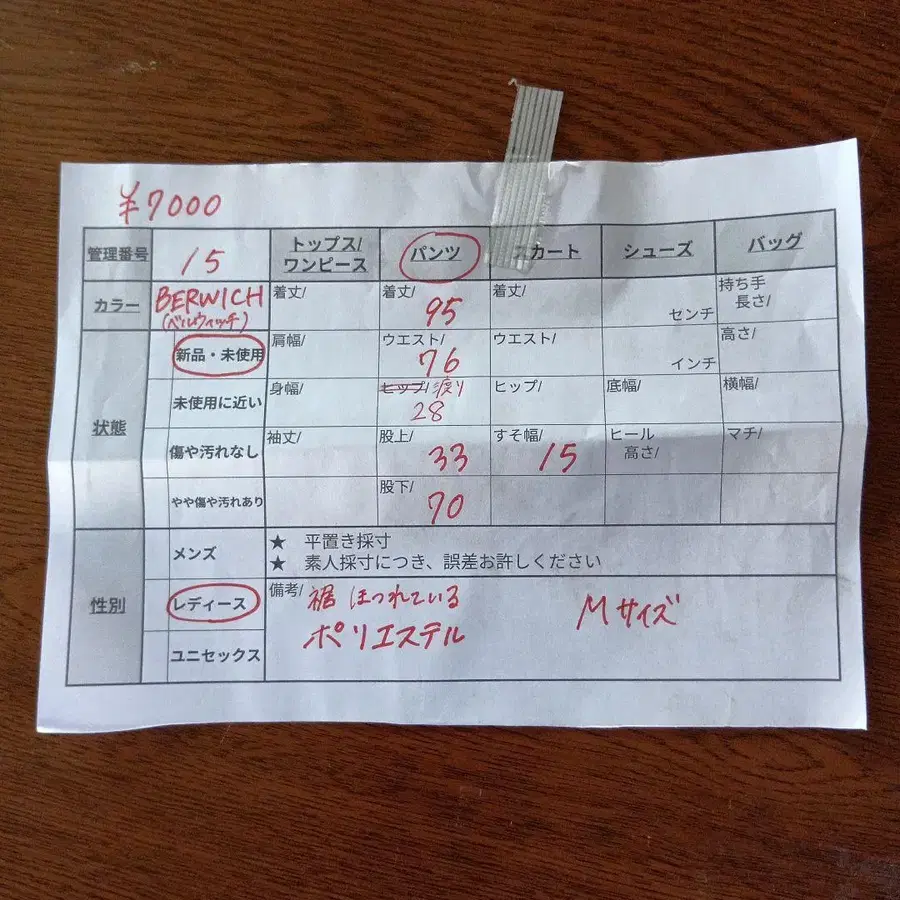 ¥7000
管理番号 15 トップス/ワンピース パンツ スカート シューズ バッグ
カラー BERWICH (ベルウィッチ) 着丈/ 着丈/ 95 着丈/ センチ 持ち手長さ/
状態 新品・未使用 肩幅/ ウエスト/ 76 ウエスト/ インチ 高さ/
未使用に近い 身幅/ ヒップ/渡り 28 ヒップ/ 底幅/ 横幅/
傷や汚れなし 袖丈/ 股上/ 33 すそ幅/ 15 ヒール高さ/ マチ/
やや傷や汚れあり 股下/ 70
性別 メンズ ★ 平置き採寸
★ 素人採寸につき、誤差お許しください
レディース 備考/ 裾 ほつれている Mサイズ
ポリエステル
ユニセックス